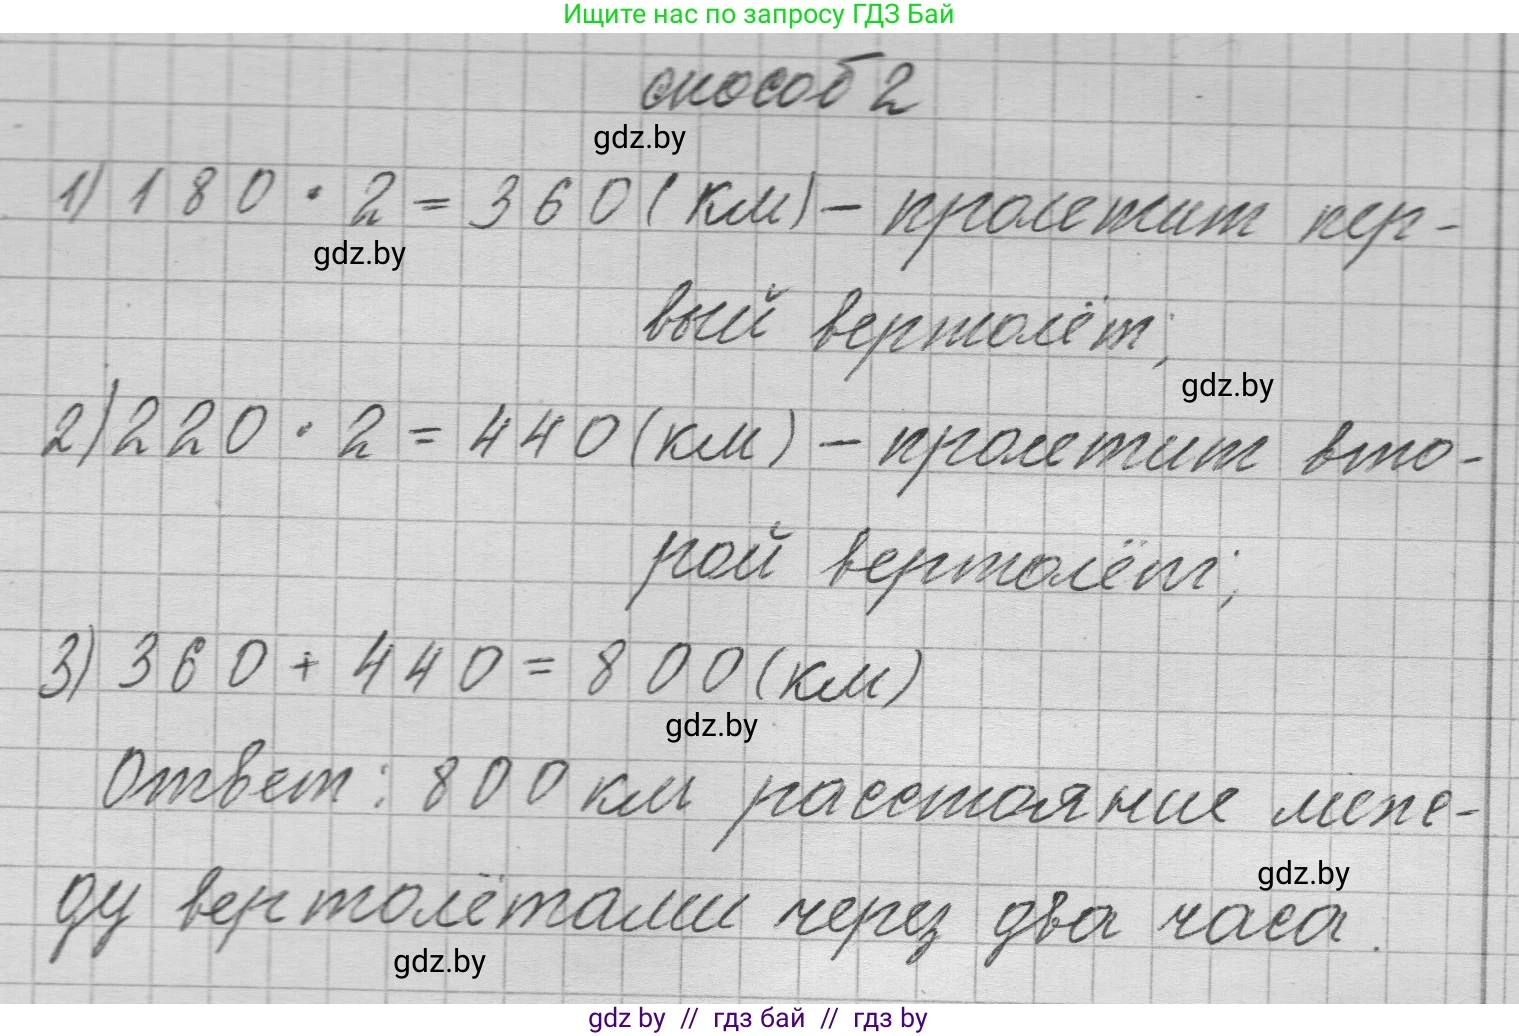 Ищите нас по запросу ГДЗ Бай
способ 2
gdz.by
1) 180 · 2 = 360 (км) – пролетит пер-
gdz.by
вый вертолёт;
gdz.by
2) 220 · 2 = 440 (км) – пролетит вто-
рой вертолёт;
3) 360 + 440 = 800 (км)
gdz.by
Ответ: 800 км расстояние меж-
gdz.by
ду вертолётами через два часа.
gdz.by
gdz by // гдз бай // гдз by